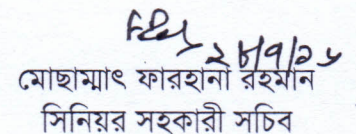 ২৮/৭/২৬
মোছাম্মাৎ ফারহানা রহমান
সিনিয়র সহকারী সচিব